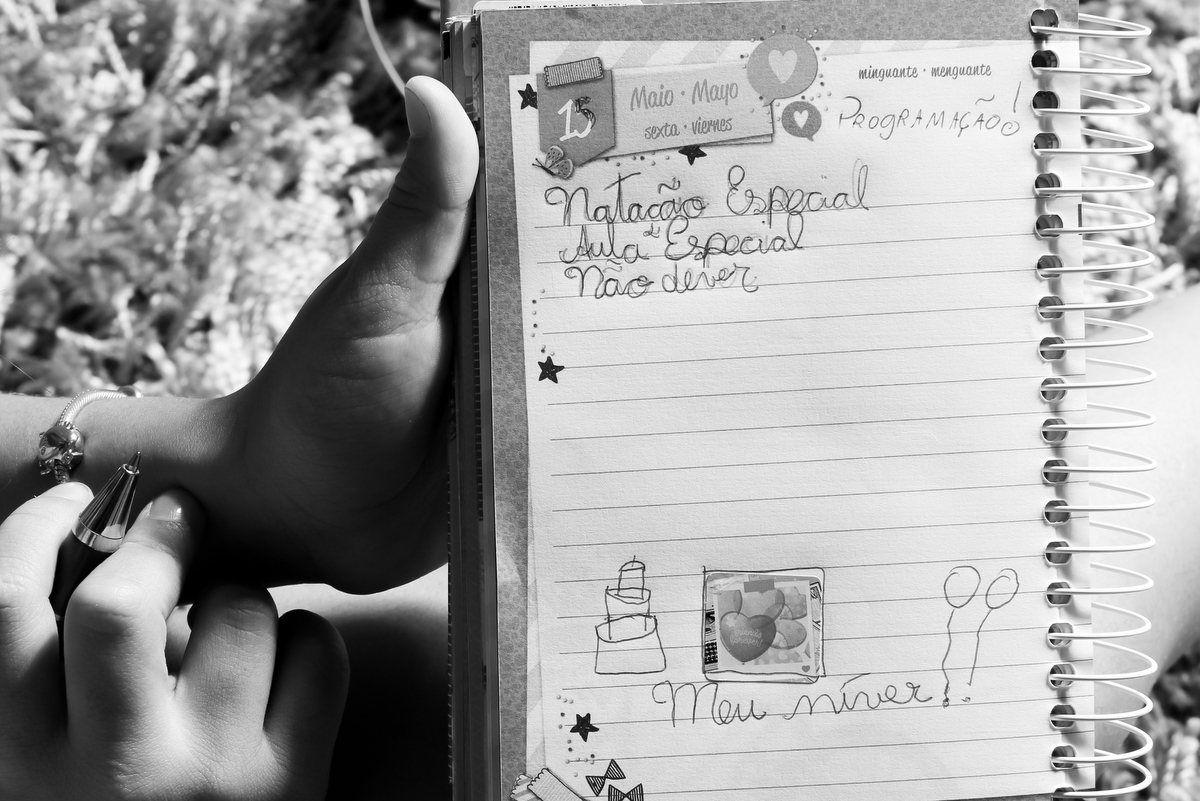 minguante · menguante
15
Maio · Mayo
sexta · viernes
PROGRAMAÇÃO!
Natação Especial
Aula Especial
Não dever
Meu níver!